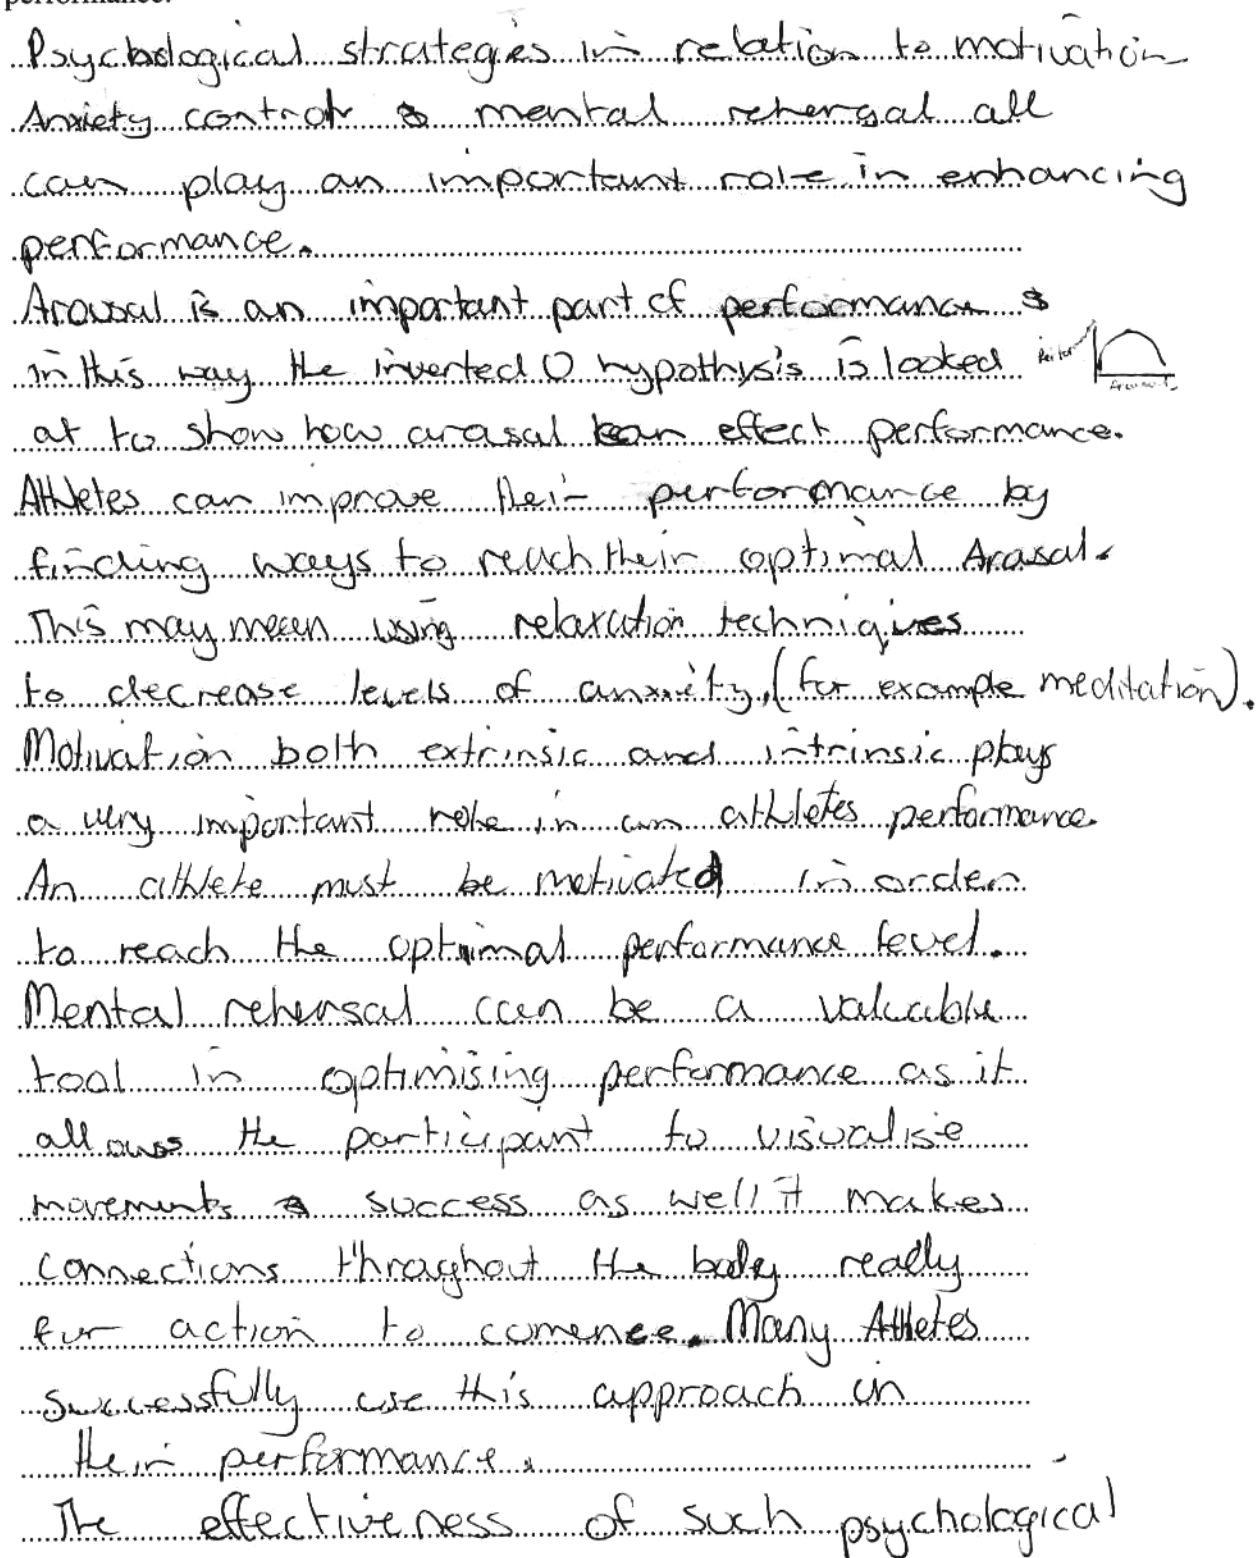 performance.
Psychological strategies in relation to motivation
Anxiety control & mental rehersal all
can play an important role in enhancing
performance.
Arousal is an important part of performance &
in this way the inverted U hypothysis is looked
Perfor
Arousal
at to show how arasal can effect performance.
Athletes can improve their performance by
finding ways to reach their optimal Arasal.
This may mean using relaxation techniques
to decrease levels of anxiety, (for example meditation).
Motivation both extrinsic and intrinsic plays
a very important role in an athletes performance.
An athlete must be motivated in order
to reach the optimal performance level.
Mental rehersal can be a valuable
tool in optimising performance as it
allows the participant to visualise
movements & success as well it makes
connections throughout the body ready
for action to comence. Many Athletes
successfully use this approach in
their performance.
The effectiveness of such psychological